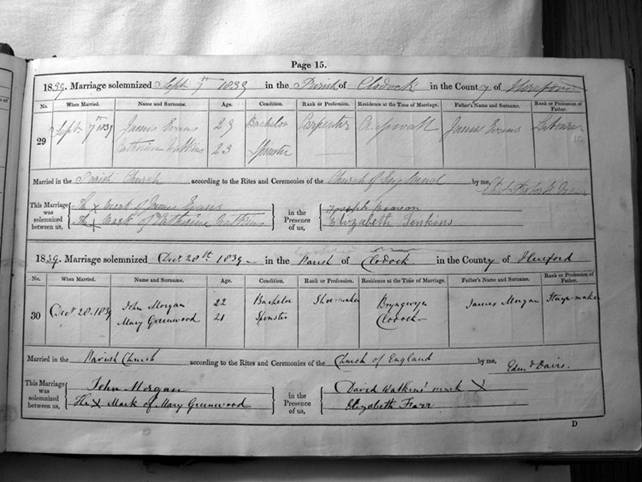 Page 15.
1839. Marriage solemnized Sept 7th 1839 in the Parish of Clodock in the County of
No. When Married. Name and Surname. Age. Condition. Rank or Profession. Residence at the Time of Marriage. Father's Name and Surname. Rank or Profession of Father.
29 Sept 7th 1839 James Evans 23 Bachelor Carpenter James Evans Labourer
Catherine Watkins 23 Spinster
Married in the Parish Church according to the Rites and Ceremonies of the Church of England by me,
This Marriage was solemnized between us, The X mark of James Evans
The X Mark of Catherine Watkins
in the Presence of us, Joseph
Elizabeth Jenkins
1839. Marriage solemnized Decr 20th 1839 in the Parish of Clodock in the County of Hereford
No. When Married. Name and Surname. Age. Condition. Rank or Profession. Residence at the Time of Marriage. Father's Name and Surname. Rank or Profession of Father.
30 Decr 20. 1839 John Morgan 22 Bachelor Shoe-maker James Morgan
Mary Greenwood 21 Spinster Clodock
Married in the Parish Church according to the Rites and Ceremonies of the Church of England by me, Edmd Davis.
This Marriage was solemnized between us, John Morgan
The X Mark of Mary Greenwood
in the Presence of us, David Watkins' mark X
Elizabeth Farr
D